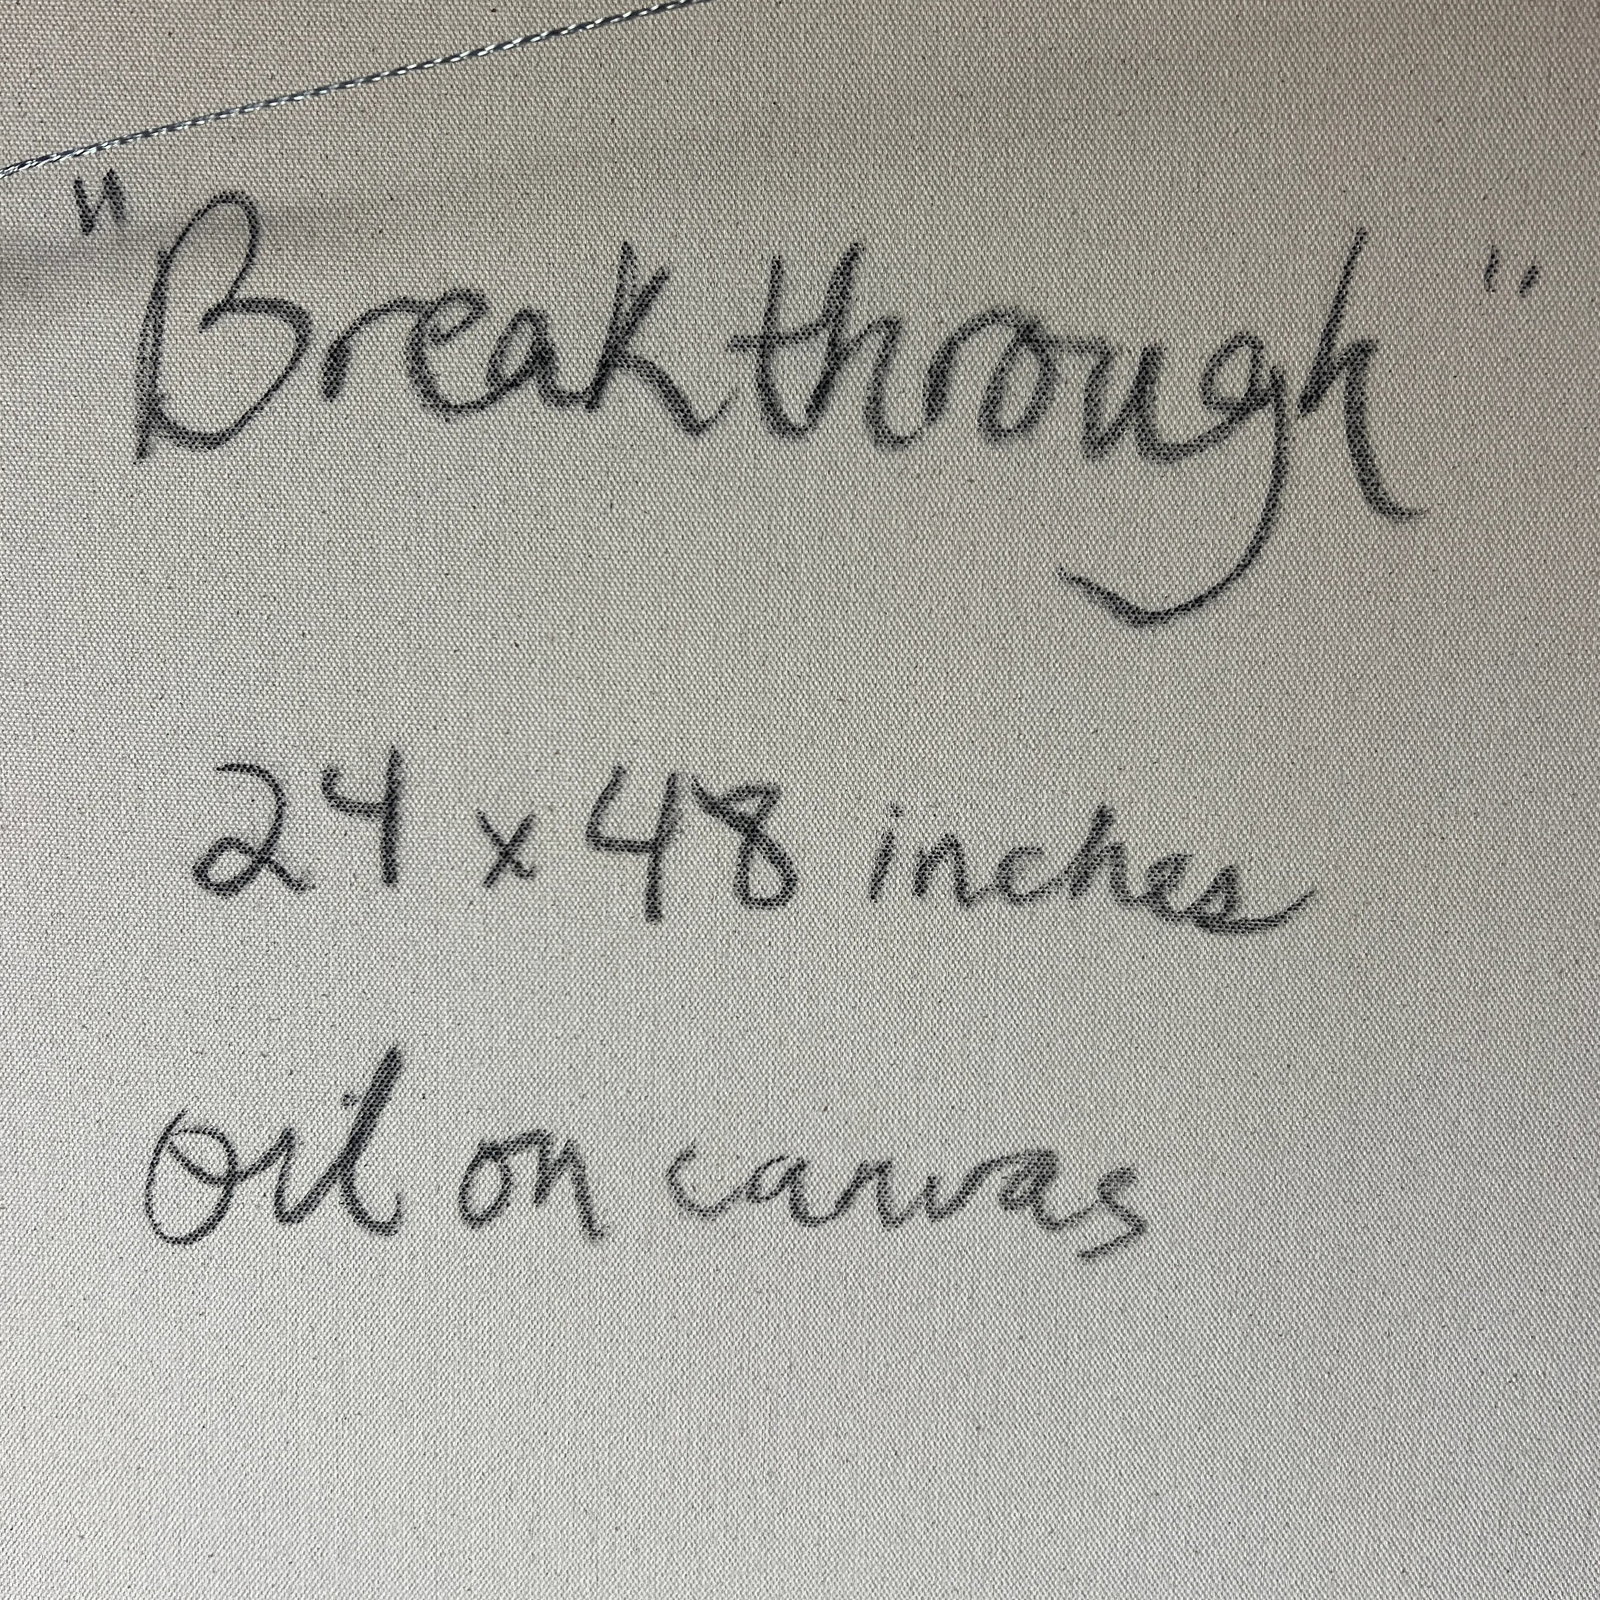 "Breakthrough"
24 x 48 inches
oil on canvas